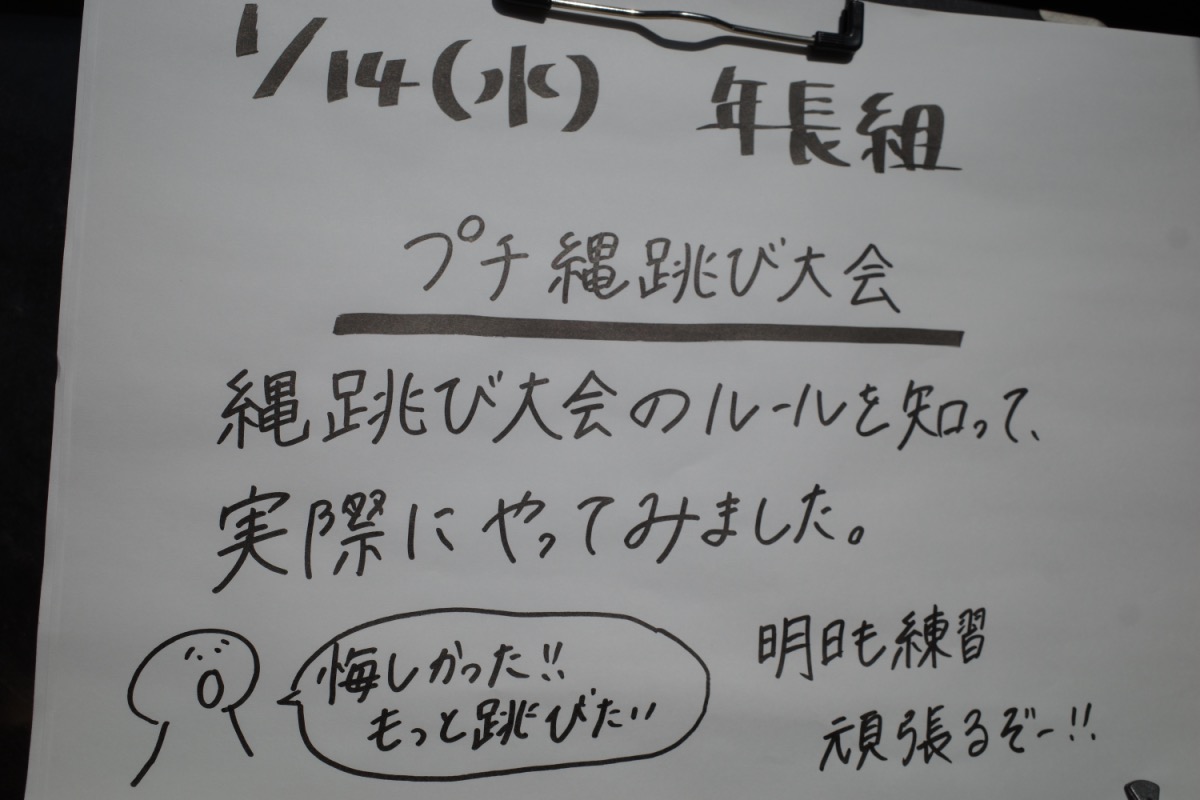 1/14(水) 年長組
プチ縄跳び大会
縄跳び大会のルールを知って、
実際にやってみました。
悔しかった!!
もっと跳びたい
明日も練習
頑張るぞー!!